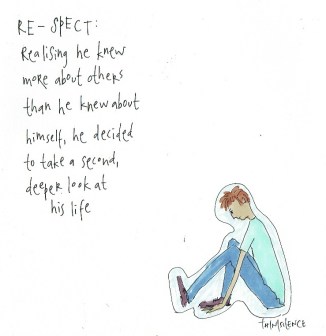 RE-SPECT:
Realising he knew
more about others
than he knew about
himself, he decided
to take a second,
deeper look at
his life